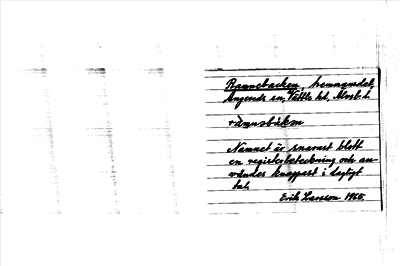 Rannebacken, hemmansdel,
Angereds sn, Vättle hd, Älvsb. l.
rannəbákən
Namnet är snarast blott
en registerbeteckning och an-
vändes knappast i dagligt
tal.
Erik Larsson 1965.